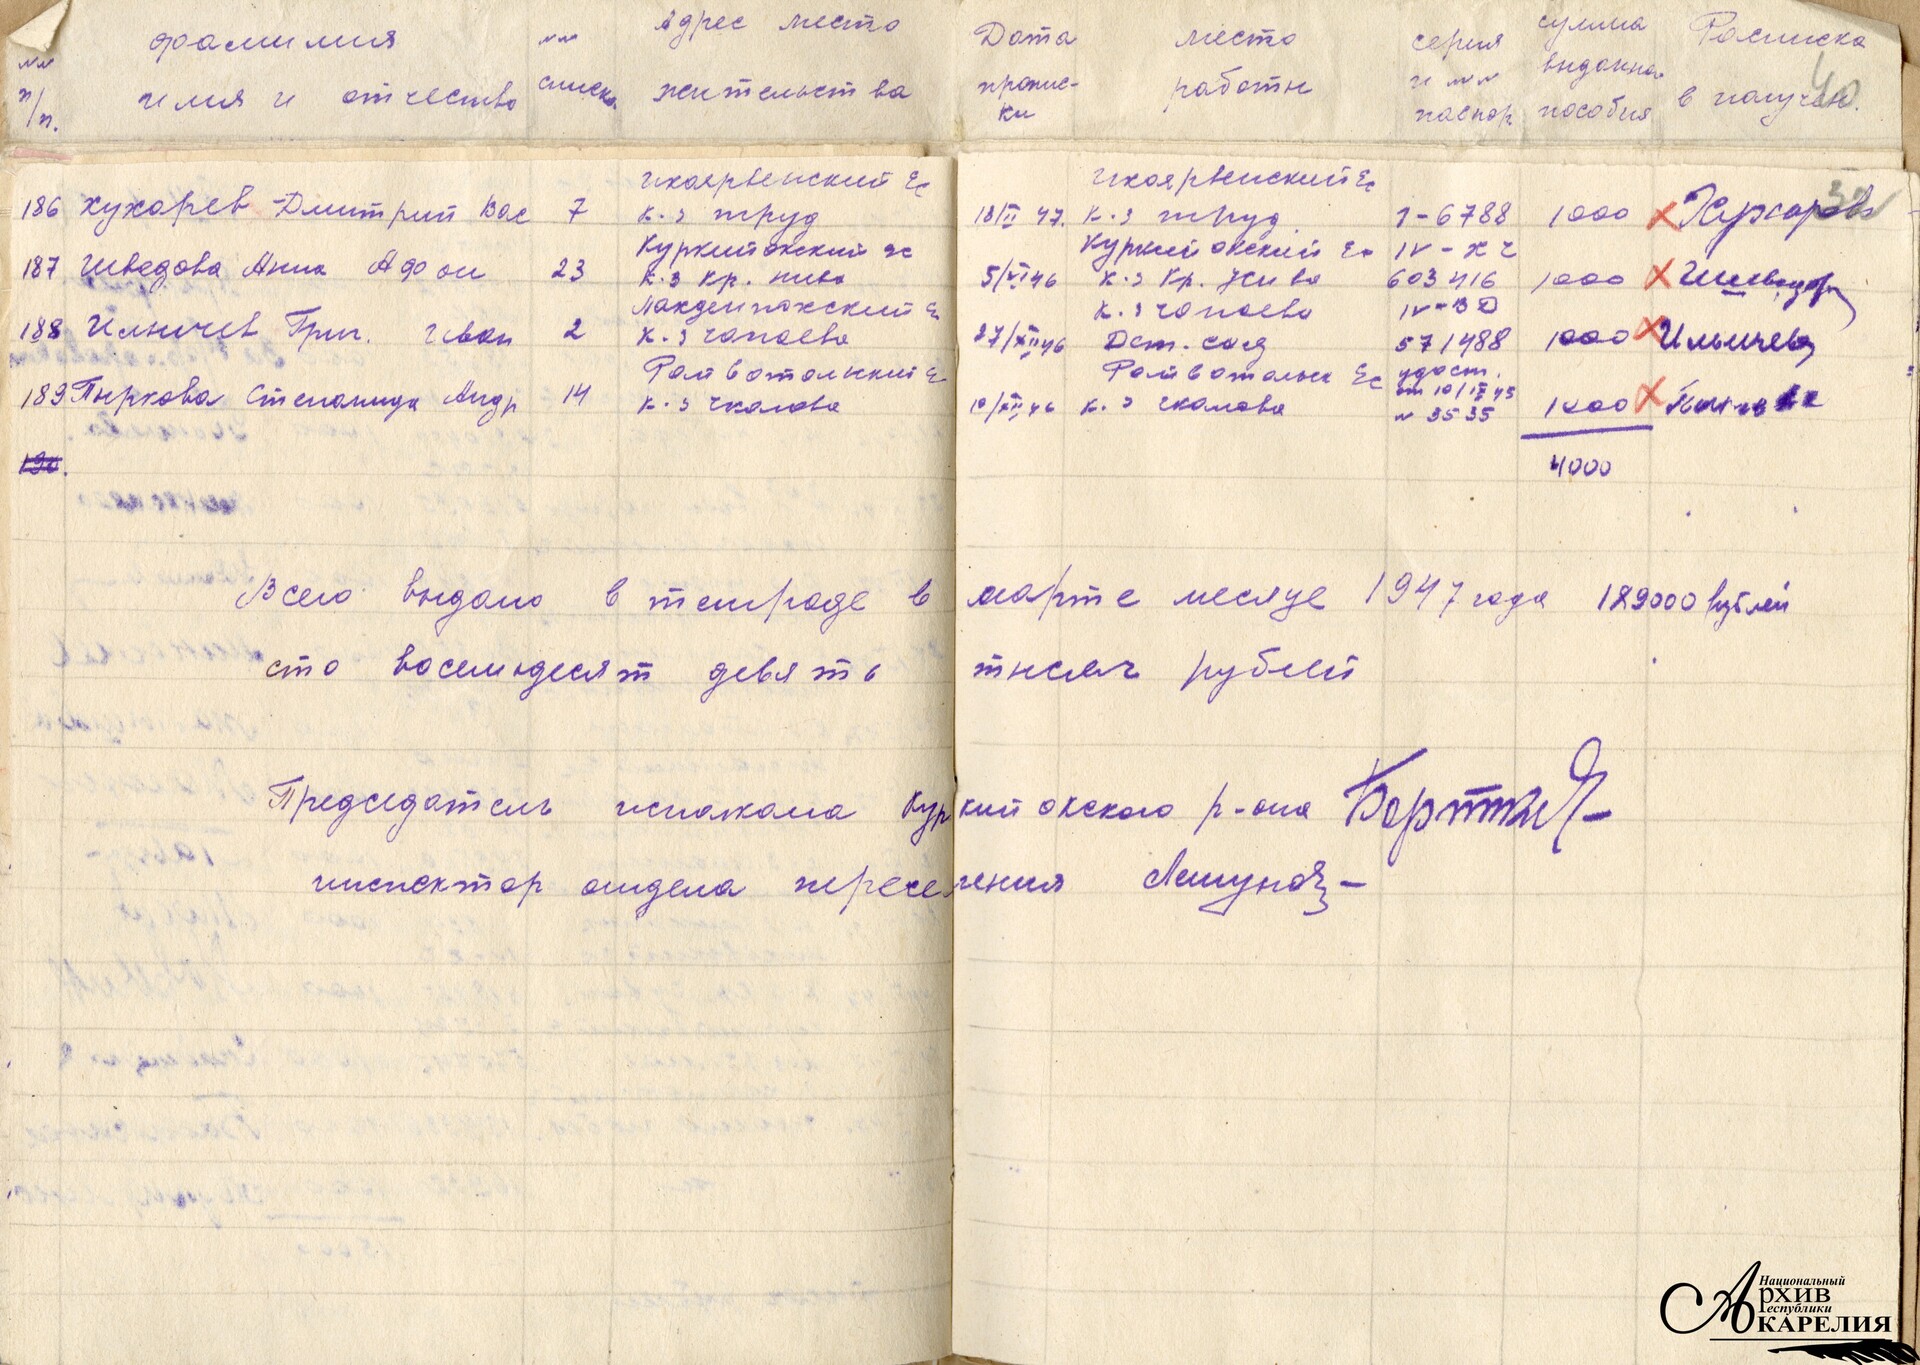 №№ п/п. фамилия имя и отчество №№ списка Адрес место жительства Дата пропис-ки место работы серия и №№ паспор. сумма выданна пособия Расписка в получен.
40
Ихоярвенский с/с Ихоярвенский с/с
186 Кухарев Дмитрий Вас 7 к-з труд 18/II 47. к-з труд 1-6788 1000 х Кухарев
Куркийокский с/с Куркийокский с/с IV-ХЧ
187 Шведова Анна Афон 23 к-з Кр. нива 5/VI 46 к-з Кр. Нива 603416 1000 х Шведова
Лахденпохский с/с к-з чапаева IV-ВД
188 Ильичев Григ. Иван 2 к-з чапаева 27/XII 46 571488 1000 х Ильичев
Райватальский с/с Райватальск с/с удост.
от 10/IX 45
189 Пыркова Степанида Андр 14 к-з Чкалова 10/XII 46 к-з Чкалова № 3535 1000 х
190. 4000
Всего выдано в тетраде в марте месяце 1947 года 189000 рублей
сто восемьдесят девять тысяч рублей
Председатель исполкома Куркийокского р-она
инспектор отдела переселения
Национальный
Архив
Республики
Карелия